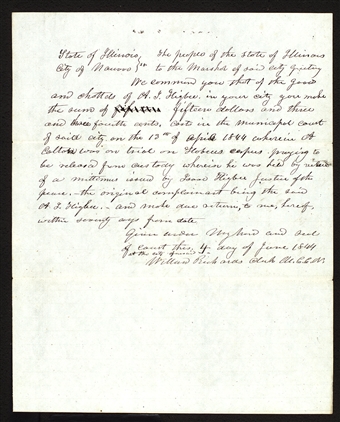 State of Illinois, } The people of the state of Illinois
City of Nauvoo } ss to the Marshal of said city Greeting
We command you that of the goods
and chattels of A. J. Higbee in your city you make
the sum of fifteen dollars and three
and three fourths cents, costs in the municipal court
of said city on the 13th of April 1844 wherein A
Colton was on trial on Habeus corpus praying to
be released from custody wherein he was held by virtue
of a mittimus issued by Isaac Higbee Justice of the
peace. the original complainant being the said
A. J. Higbee. - and make due return, to me, hereof,
within seventy days from date
Given under My hand and seal
of court this 4 day of June 1844
at the city
Willard Richards Clerk M.C.C.N.